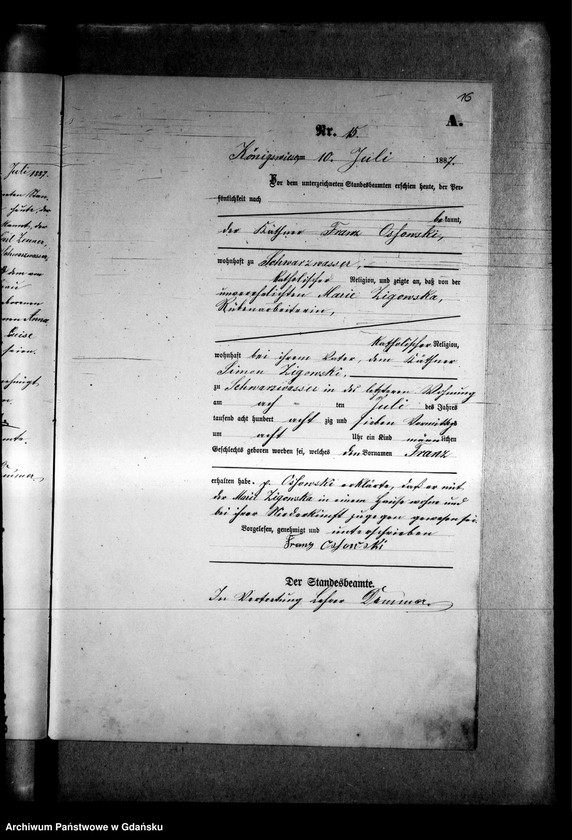 16
A.
Nr. 15.
Königswiese 10. Juli 1887.
Vor dem unterzeichneten Standesbeamten erschien heute, der Per-
sönlichkeit nach
bekannt,
der Käthner Franz Ossowski,
wohnhaft zu Schwarzwasser,
katholischer Religion, und zeigte an, daß von der
unverehelichten Marie Zigowska,
Rübenarbeiterin,
katholischer Religion,
wohnhaft bei ihrem Vater, dem Käthner
Simon Zigowski,
zu Schwarzwasser in des letzteren Wohnung
am ach ten Juli des Jahres
tausend acht hundert acht zig und sieben Vormittags
um acht Uhr ein Kind männlichen
Geschlechts geboren worden sei, welches den Vornamen Franz
erhalten habe. p. Ossowski erklärte, daß er mit
der Marie Zigowska in einem Hause wohne und
bei ihrer Niederkunft zugegen gewesen sei.
Vorgelesen, genehmigt und unterschrieben
Franz Ossowski
Der Standesbeamte.
In Vertretung
Juli 1887.
Anna
Luise
Archiwum Państwowe w Gdańsku